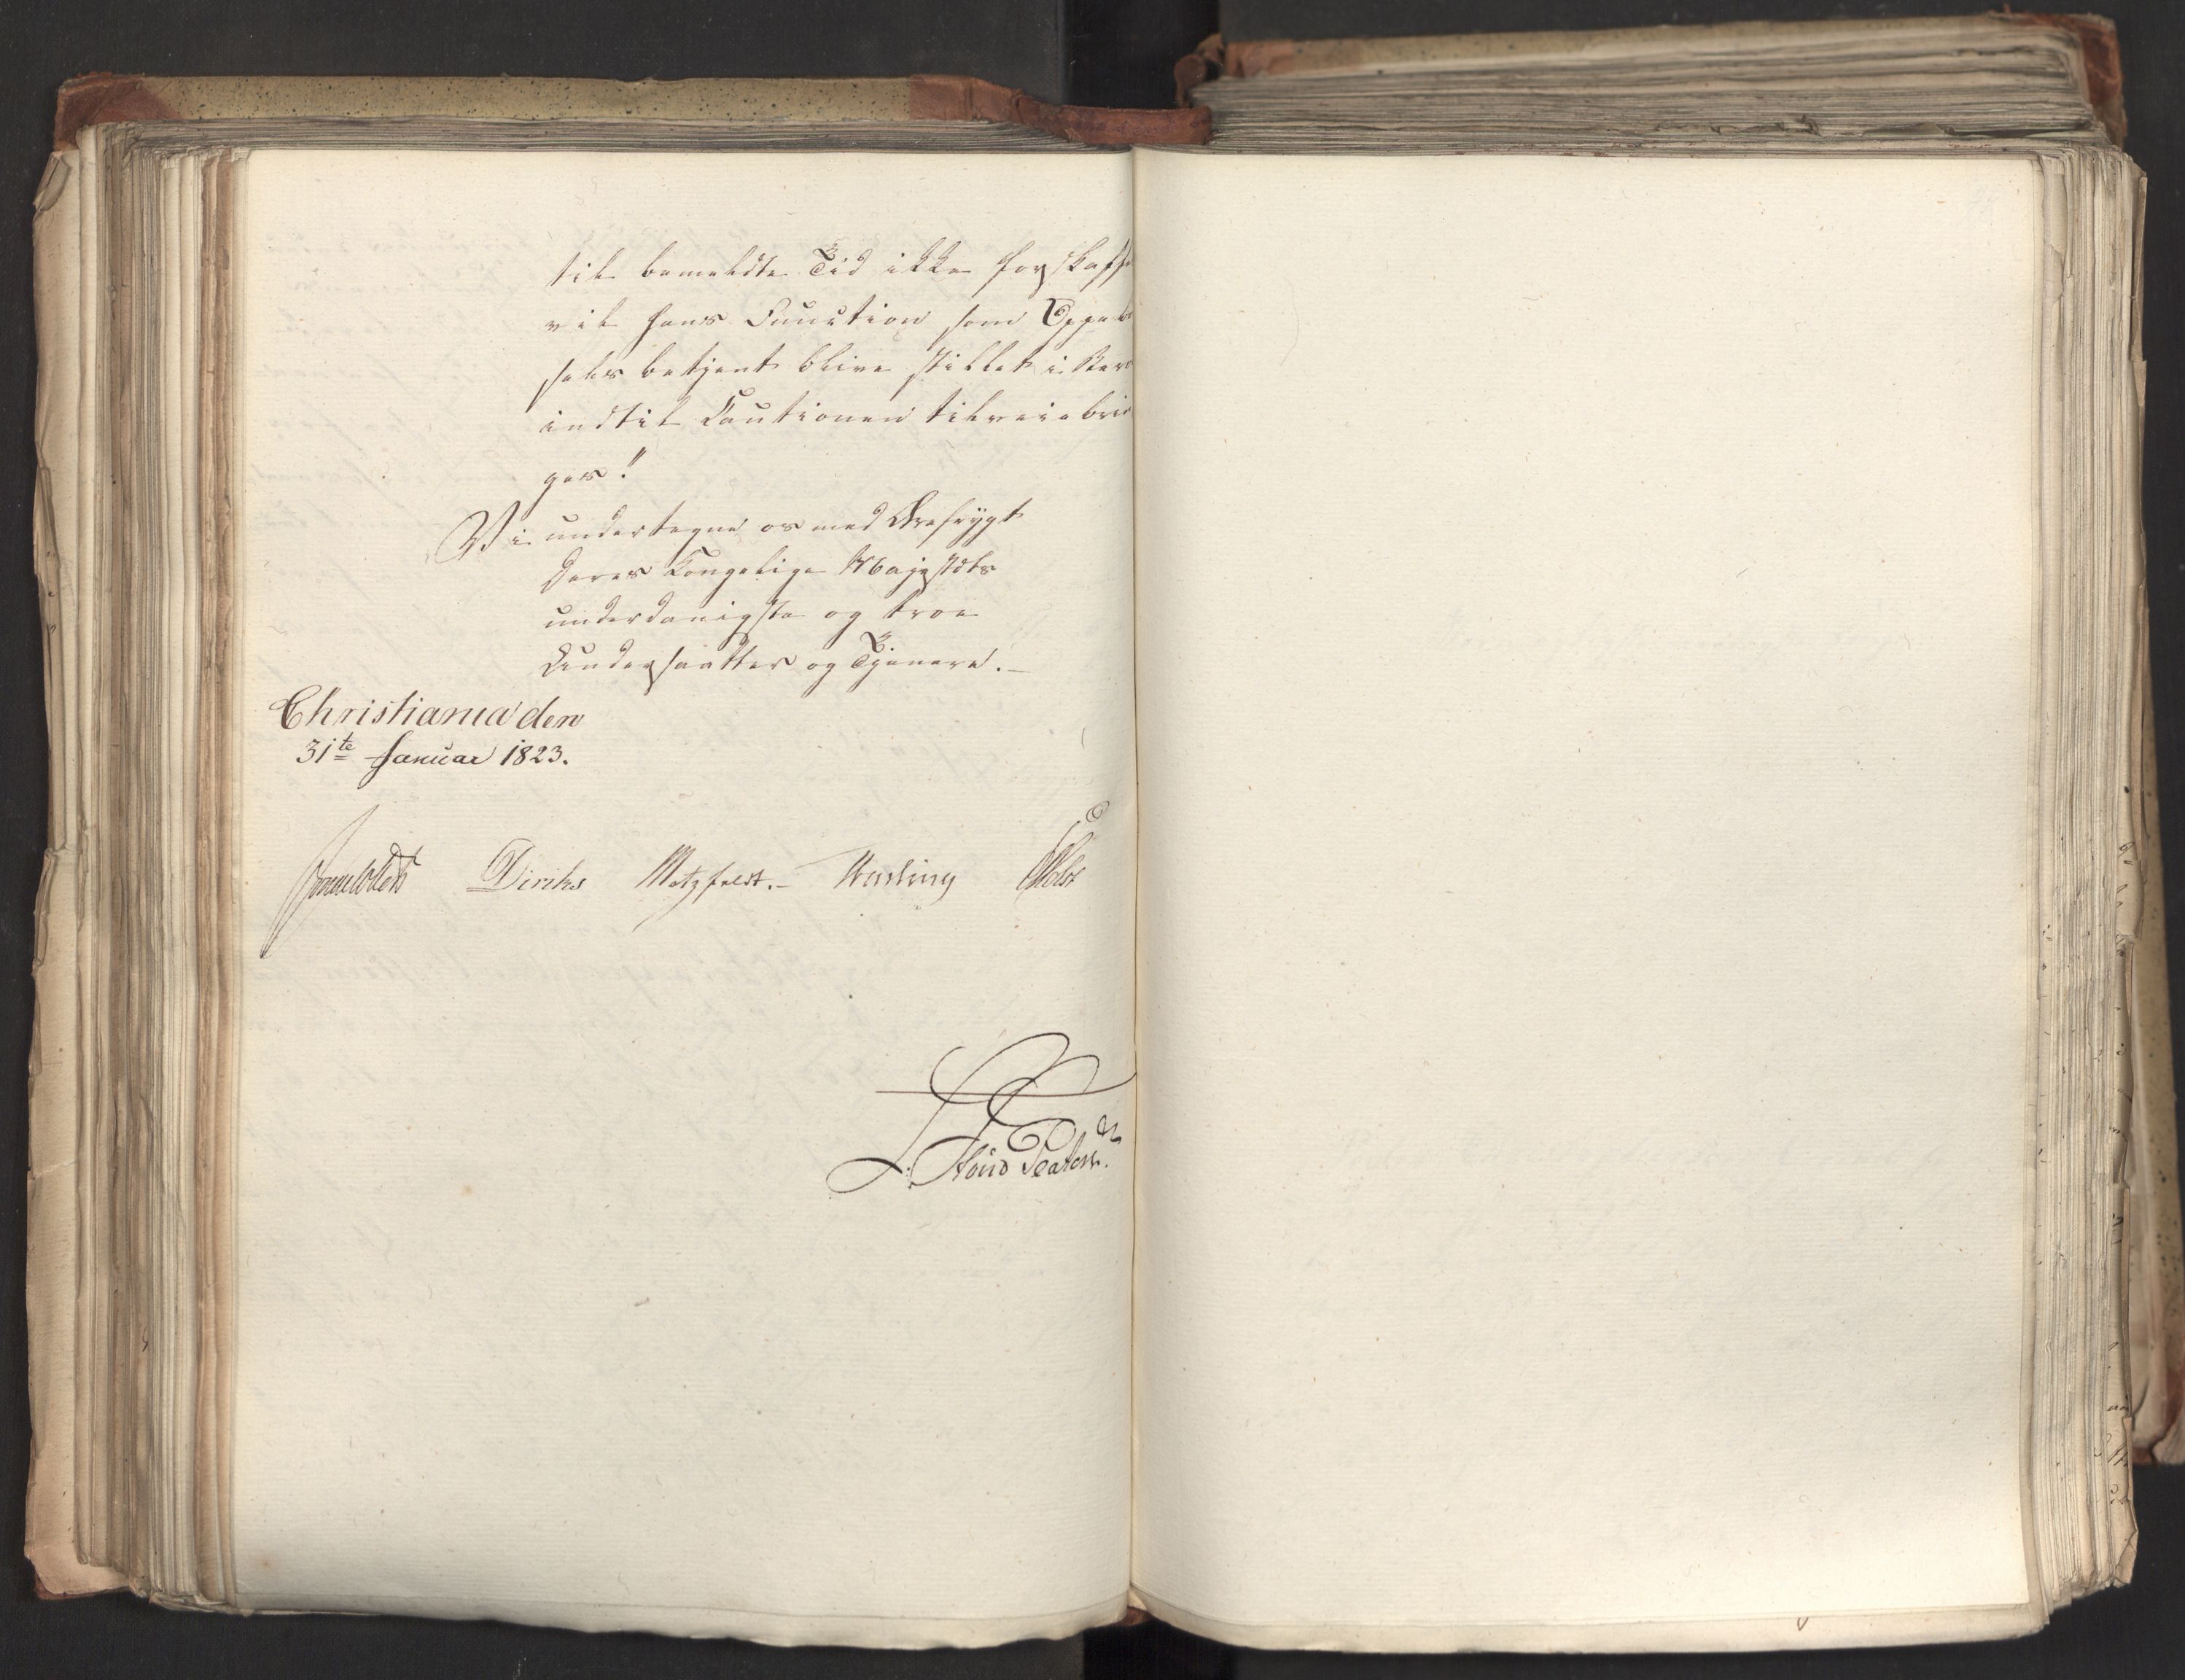 til bemeldte Tid ikke forskaffe
vil hans Function som Oppeb
sels betjent blive stillet i Bero
indtil Cautionen tilveiebrin
ges!"
Vi undertegne os med Ærefrygt
Deres Kongelige Majestæts
underdanigste og troe
Undersaatter og Tjenere.
Christiania den
31te Januar 1823.
Sommerhielm Diriks Motzfeldt. Krohg Holst